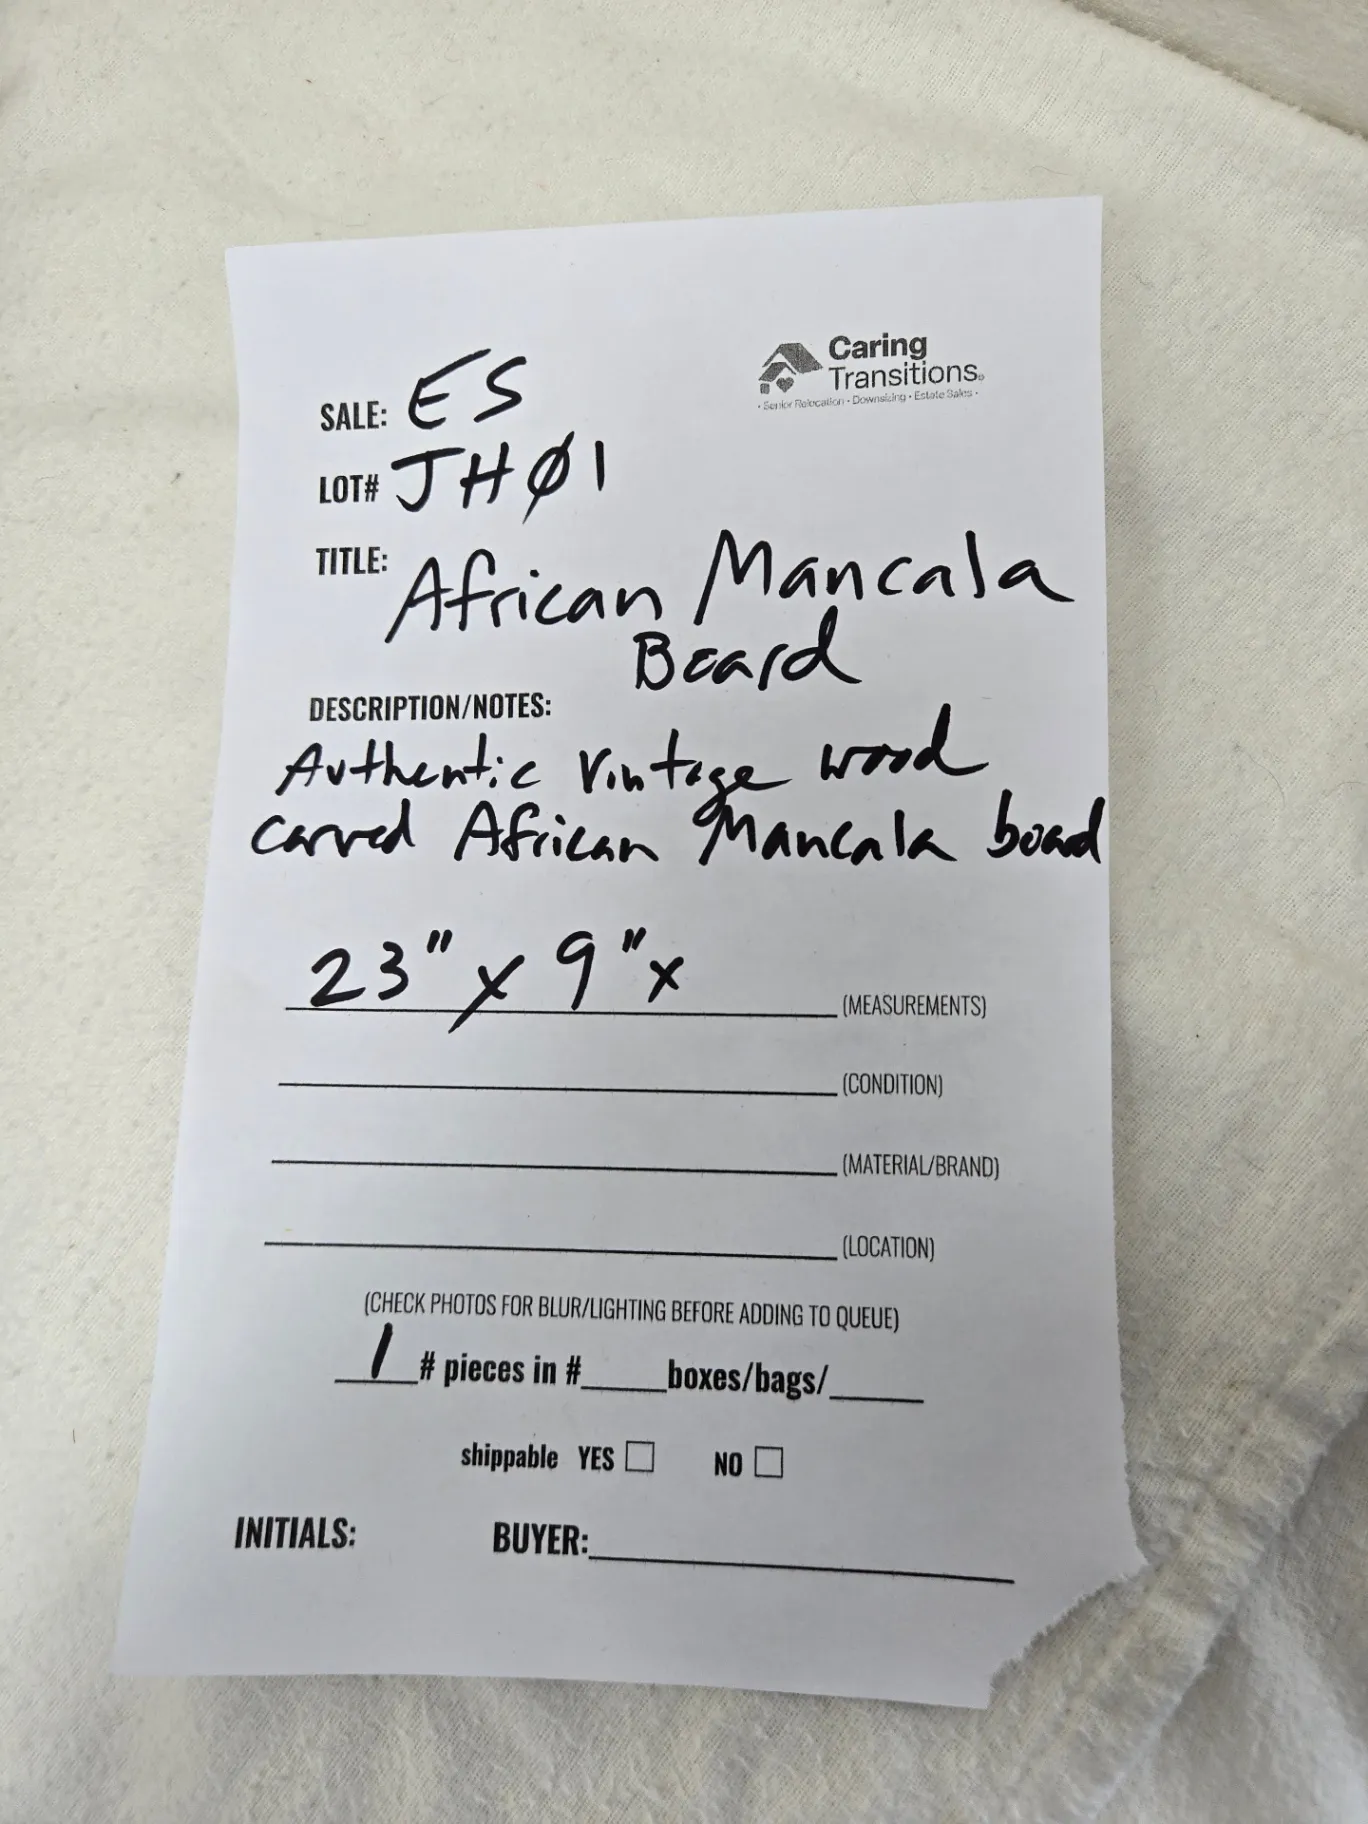 Caring
Transitions®
• Senior Relocation • Downsizing • Estate Sales •
SALE: ES
LOT# JHØ1
TITLE: African Mancala
Board
DESCRIPTION/NOTES:
Authentic vintage wood
carved African Mancala board
23" x 9" x (MEASUREMENTS)
(CONDITION)
(MATERIAL/BRAND)
(LOCATION)
(CHECK PHOTOS FOR BLUR/LIGHTING BEFORE ADDING TO QUEUE)
1 # pieces in #_____boxes/bags/_____
shippable YES ☐ NO ☐
INITIALS: BUYER:_____